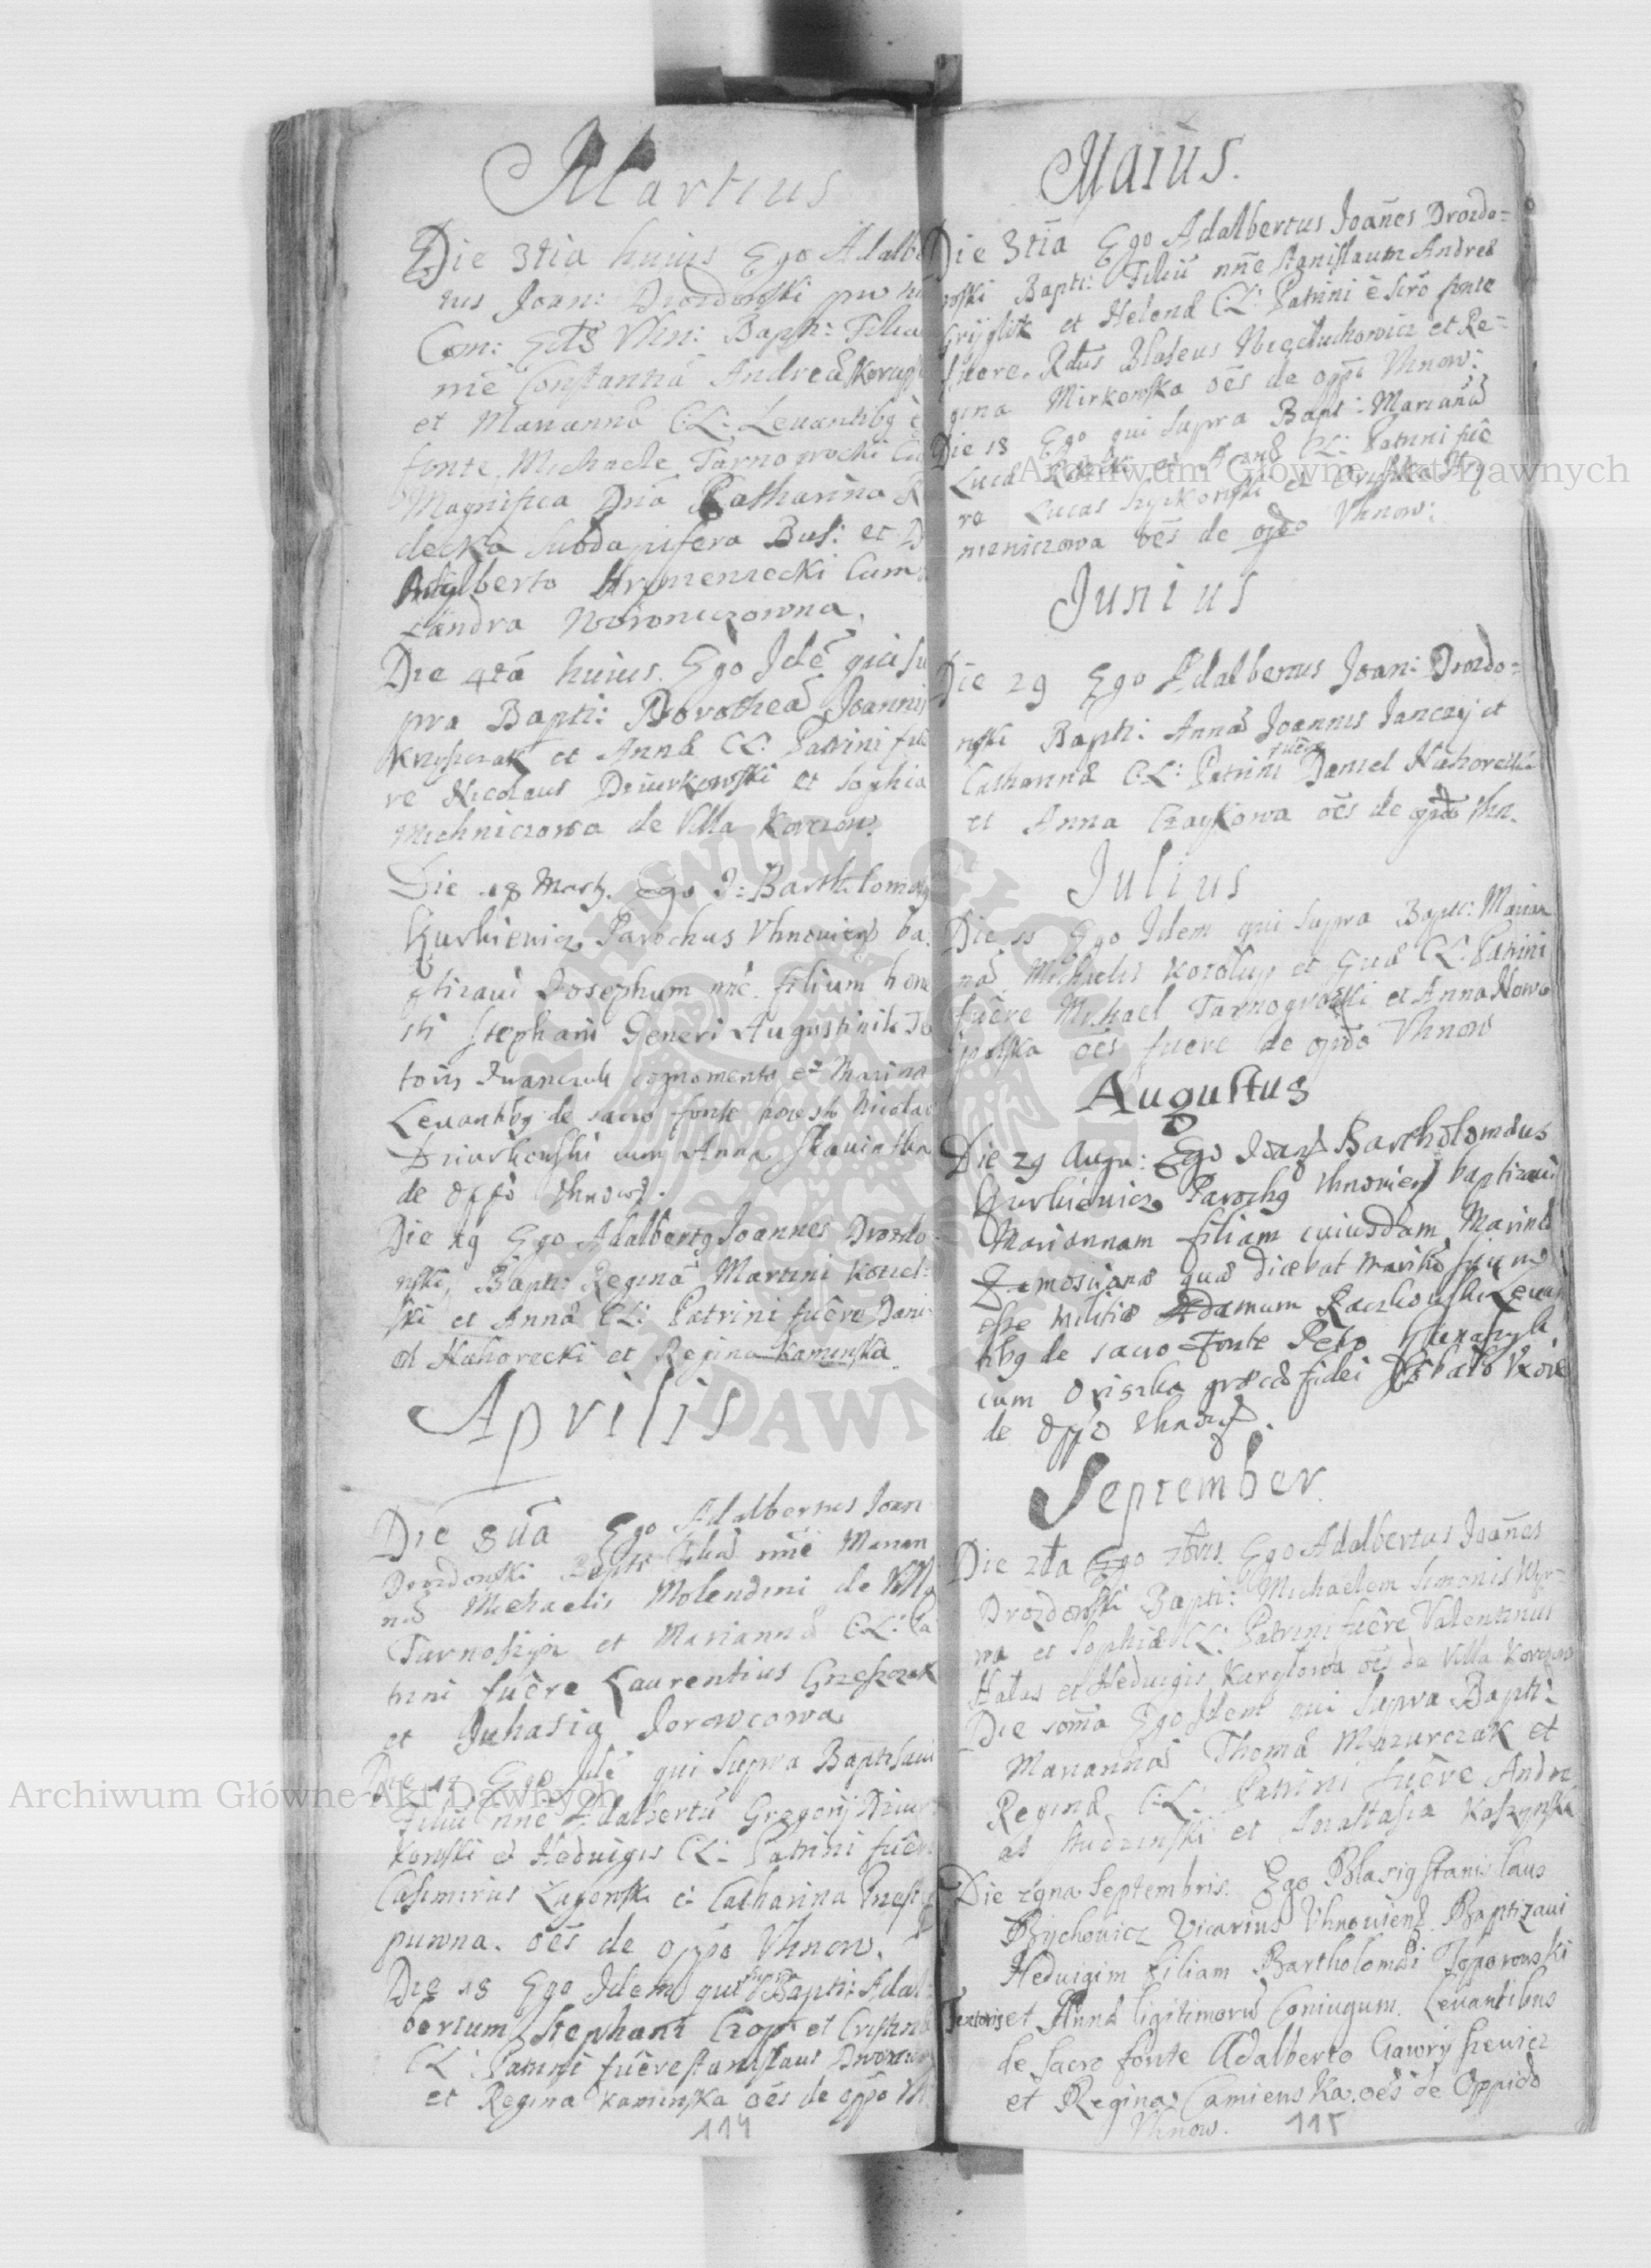 Martius
Die 3tia huius Ego Adalber
tus Joan: Drozdowski pro
Com: Ecclae Vhn: Bapti: Filia
nne Constantiã Andreæ
et Mariannæ C:L: Levantibg è
fonte Michaele Tarnogrocki Cu
Magnifica Dña Katharina
decka Subdapifera Bus: et D
Adalberto Hrymenzecki Cum
xandra Woroniczowna.
Die 4tã huius. Ego Idẽ qui Su
pra Bapti: Dorotheã Joannis
Krzyszczak et Annæ CL: Patrini fue
re Nicolaus Dziurkowski et Sophia
Michniczowa de Villa Korczow.
Die 18 Martij. Ego J: Bartholomæg
Kurkiewicz Parochus Vhnovien ba
ptizavi Josephum nne filium hone
sti Stephani Generi Augustinik
toris Iwanczuk cognomento et Marina
Levantibg de sacro fonte honesto Nicolao
Dziurkowski cum Anna
de oppo Vhnow.
Die 19 Ego Adalbertg Joannes Drozdo
wski, Bapti: Reginã Martini Koziel
ski et Annæ CL: Patrini fuêre Dani
el Nahorecki et Regina Kaminska
Aprilis
Die 8uã Ego Adalbertus Joan
Drozdowski Bapti: Filiã nne Marian
nã Michaelis Molendini de Villa
Tarnoszyn et Mariannæ C:L: Pa
trini fuêre Laurentius Grzeszczak
et Juhasia Jerowcowa
Die 12 Ego Idẽ qui Supra Baptisavi
Filiũ nne Adalbertũ Gregorij Dziur
kowski et Hedvigis CL: Patrini fuêre
Casimirius Zagorski et Catharina
puwna. oẽs de oppo Vhnow.
Die 18 Ego Idem qui supra Bapti: Adal
bertum Stephani Czop et Cristinæ
CL: Patrini fuêre Stanislaus
et Regina Kaminska oẽs de oppo Vh
114
Maius.
Die 3tiã Ego Adalbertus Joañes Drozdo=
wski Bapti: Filiũ nñe Stanislaum Andreæ
Gryglik et Helenæ C:L: Patrini è Scro fonte
fuere. Rdus Blaseus et Re=
gina Mirkowska oẽs de oppi Vhnow:
Die 18 Ego qui Supra Bapt: Mariañã
Lucæ et Annæ CL: Patrini fuê
re Lucas et
meniczowa oẽs de opdo Vhnow:
Junius
Die 29 Ego Adalbertus Joan: Drozdo=
wski Bapti: Annã Joannis Janczij et
Catharinæ C:L: Patrini fuêre Daniel Nahorecki
et Anna Czaykowa oẽs de opdo Vhn.
Julius
Die 11 Ego Idem qui Supra Bapti: Marian
nã Michaelis Kozolup et Evæ CL: Patrini
fuêre Michael Tarnogrodzki et Anna Nowo
polska oẽs fuere de opdo Vhnow
Augustus
Die 29 Augu: Ego Joañ Bartholomæus
Kurkiewicz Parochg Vhnovien baptizavi
Mariannam filiam cuiusdam Marinæ
Zamoscianæ quæ dicebat maritũ suum
esse militiæ Adamum Raczkowski Levan
tibg de sacro fonte Petro
cum Oriszka græcæ fidei
de oppo Vhnow.
September
Die 2da Ego 7bris. Ego Adalbertus Joañes
Drozdowski Bapti: Michaelem Simonis Wyr=
wa et Sophiæ CL: Patrini fuêre Valentinus
Halas et Hedvigis Karylowa oẽs de Villa Korczow
Die 10ma Ego Idem qui Supra Bapti:
Mariannã Thomæ Mazurczak et
Reginæ C:L: Patrini fuêre Andre
as Studzinski et Anastasia Koszynska
Die 29na Septembris. Ego Blasig Stanislaus
Bychowicz Vicarius Vhnoviens Baptizavi
Hedvigim filiam Bartholomæi Toporowski
Textoris et Annæ ligitimorũ Coniugum. Levantibus
de Sacro fonte Adalberto Gawryszewicz
et Reginæ Camienska. oẽs de Oppido
Vhnow.
115
Archiwum Główne Akt Dawnych
Archiwum Główne Akt Dawnych
ARCHIWUM GŁÓWNE AKT DAWNYCH